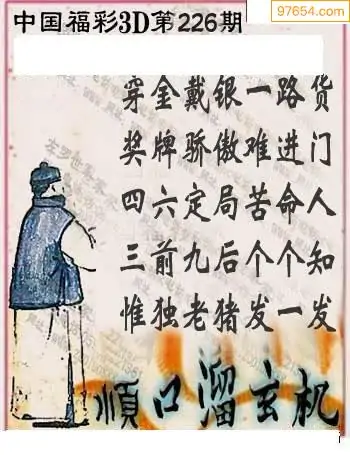 97654.com
中国福彩3D第226期
穿金戴银一路货
奖牌骄傲难进门
四六定局苦命人
三前九后个个知
惟独老猪发一发
顺口溜玄机